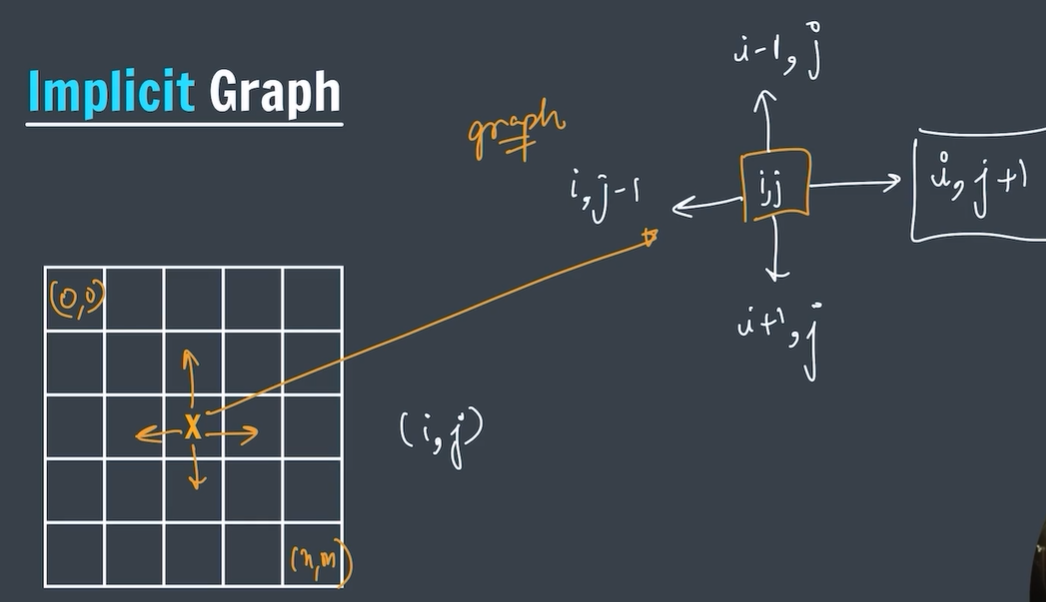 Implicit Graph
graph
i-1, j
i, j-1
i,j
i, j+1
i+1, j
(0,0)
X
(i, j)
(n,m)